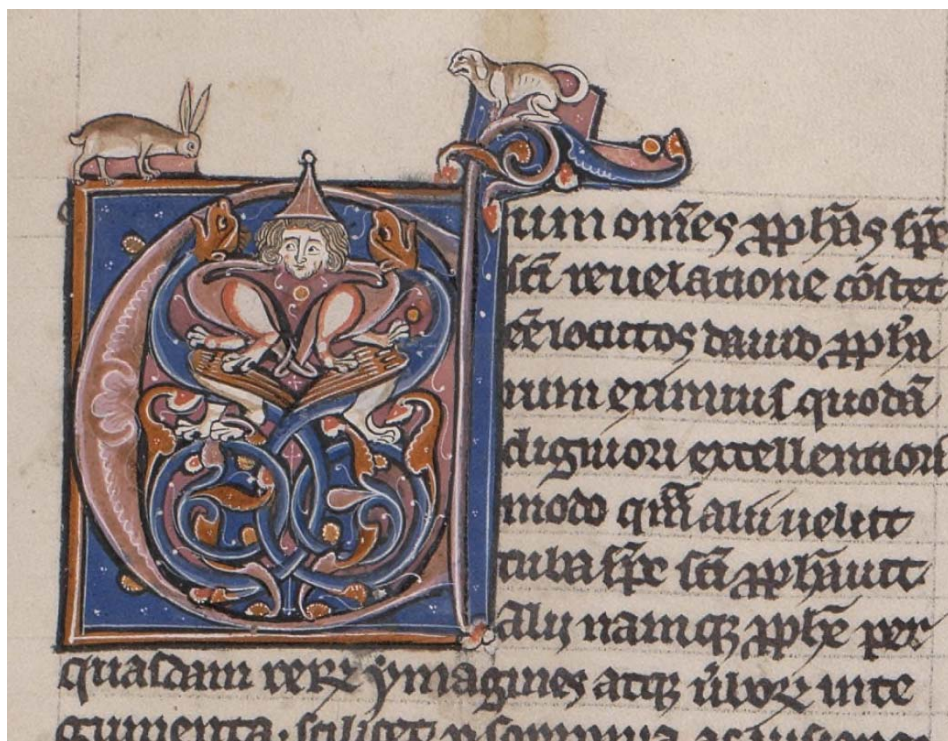 Cum om̄es ꝓph̄as sp̄c
sc̄i reuelatione cōstet
eē locutos dauid ꝓph̄a
rum eximius quodā
digniori excellentiori
modo qm̄ alii uelut
tuba sp̄c sc̄i ꝓph̄auit.
Alij namqꝫ ꝓph̄e per
quasdam rerꝝ ymagines atqꝫ ūborꝝ inte
gumenta. scilicet